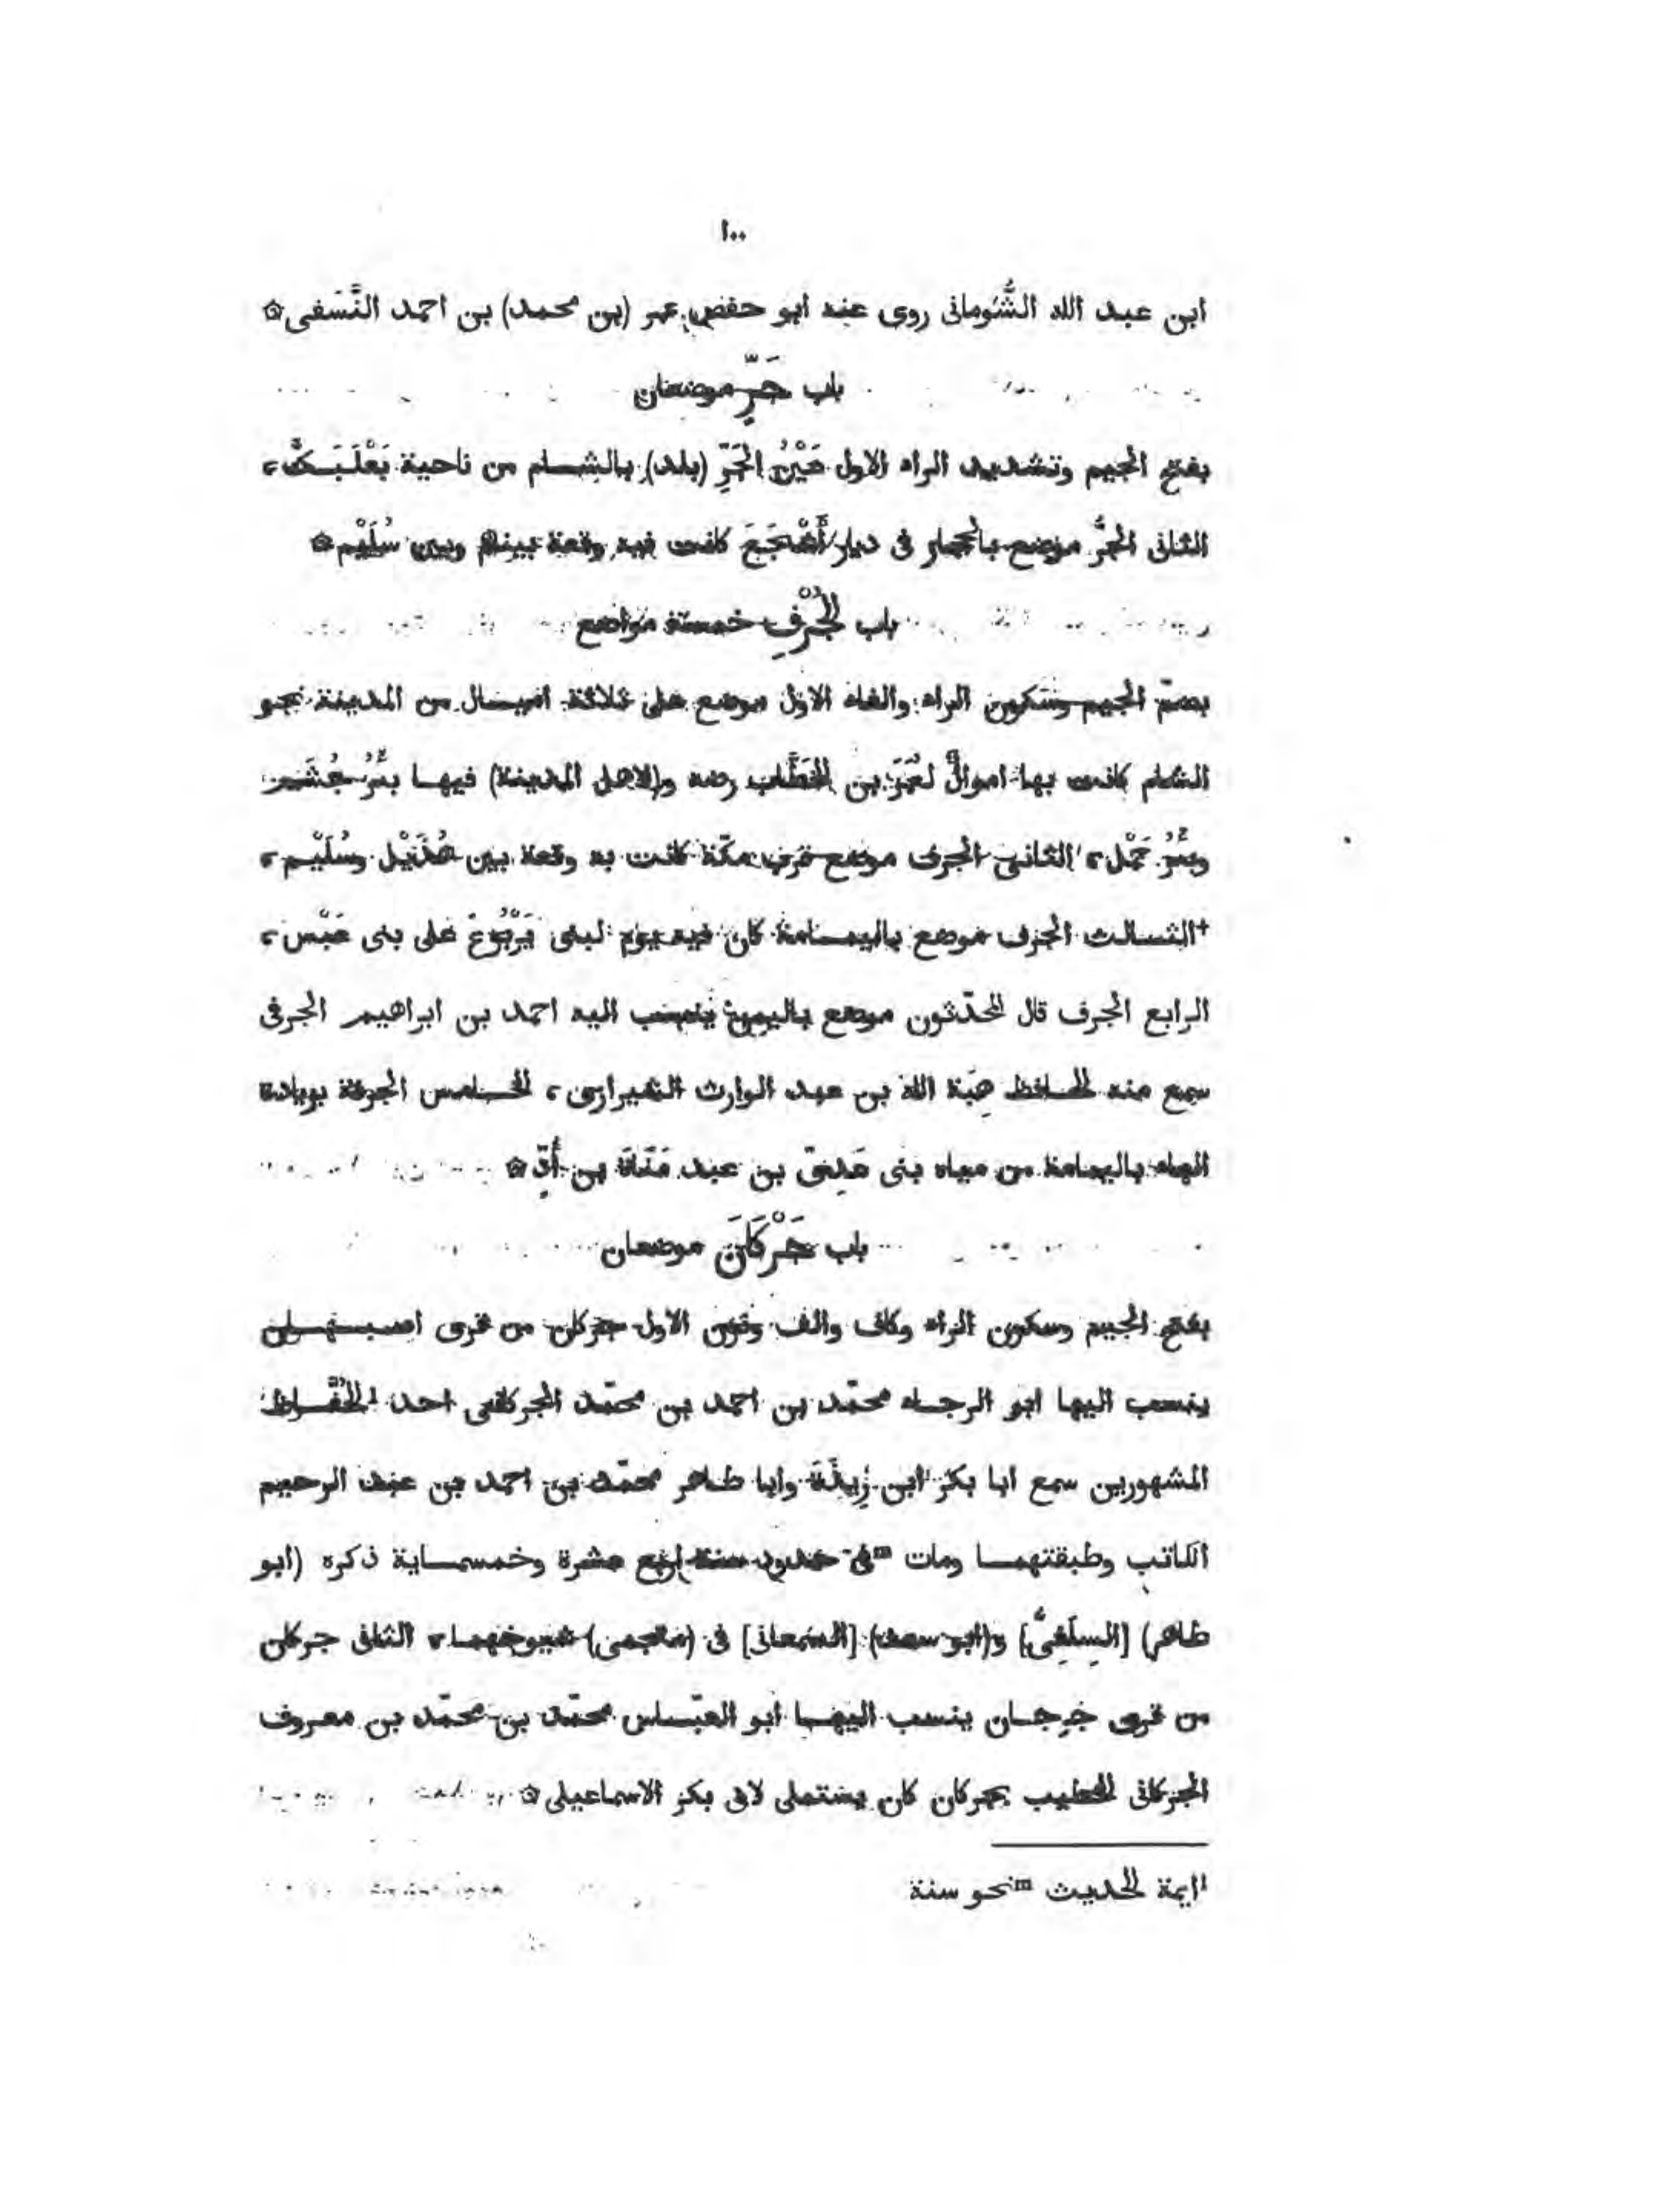 ١٠٠
ابن عبد الله الشُّومانى روى عنه ابو حفص عمر (بن محمد) بن احمد النَّسَفى ۞
باب جَرٍّ موضعان
بفتح الجيم وتشديد الراء الاول عَيْنُ الجَرِّ (بلد) بالشام من ناحية بَعْلَبَكَّ،
الثانى الجرُّ موضع بالحجاز فى ديار أَشْجَعَ كانت فيه وقعة بينهم وبين سُلَيْم ۞
باب الجُرْفِ خمسة مواضع
بضمّ الجيم وسكون الراء والفاء الاول موضع على ثلاثة اميال من المدينة نحو
الشام كانت بها اموالٌ لعُمَرَ بن الخَطَّاب رضه و(لاهل المدينة) فيها بئْرُ جُشَم
وبئْرُ جَمَل، الثانى الجرف موضع قرب مكّة كانت به وقعة بين هُذَيْل وسُلَيْم،
+الثالث الجرف موضع باليمامة كان فيه يوم لبنى يَرْبُوعَ على بنى عَبْس،
الرابع الجرف قال المحدّثون موضع باليمن ينسب اليه احمد بن ابراهيم الجرفى
سمع منه الحافظ هِبَة الله بن عبد الوارث الشيرازى، الخامس الجرفة بزيادة
الهاء باليمامة من مياه بنى عَدِىّ بن عبد مَنَاةَ بن أُدٍّ ۞
باب جَرْكَانَ موضعان
بفتح الجيم وسكون الراء وكاف والف ونون الاول جركان من قرى اصبهان
ينسب اليها ابو الرجاء محمّد بن احمد بن محمّد الجركانى احد ١الحُفَّاظ
المشهورين سمع ابا بكر ابن رِيذَةَ وابا طاهر محمّد بن احمد بن عبد الرحيم
الكاتب وطبقتهما ومات m فى حدود سنة اربع عشرة وخمسماية ذكره (ابو
طاهر) [السِلَفِىُّ] و(ابو سعد) [السمعانى] فى (معجمى) شيوخهما، الثانى جركان
من قرى جرجان ينسب اليها ابو العبّاس محمّد بن محمّد بن معروف
الجركانى الخطيب بجركان كان يستملى لابى بكر الاسماعيلى ۞
١ايمة الحديث m نحو سنة